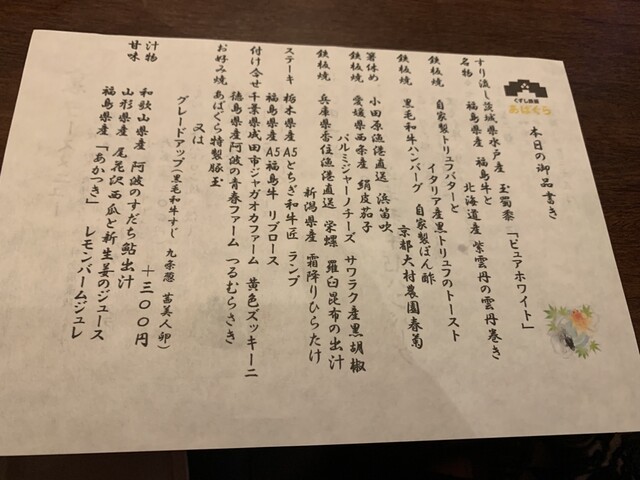 くずし鉄板
あばぐら
本日の御品書き
すり流し 茨城県水戸産 玉蜀黍 「ピュアホワイト」
名物 福島県産 福島牛と
北海道産 紫雲丹の雲丹巻き
鉄板焼 自家製トリュフバターと
イタリア産黒トリュフのトースト
鉄板焼 黒毛和牛ハンバーグ 自家製ぽん酢
京都大村農園春菊
箸休め 小田原漁港直送 浜笛吹
鉄板焼 愛媛県西条産 絹皮茄子
パルミジャーノチーズ サワラク産黒胡椒
鉄板焼 兵庫県香住漁港直送 栄螺 羅臼昆布の出汁
新潟県産 霜降りひらたけ
ステーキ 栃木県産A5とちぎ和牛匠 ランプ
福島県産A5福島牛 リブロース
付け合せ 千葉県成田市ジャガオカファーム 黄色ズッキーニ
徳島県産阿波の青春ファーム つるむらさき
お好み焼 あばぐら特製豚玉
又は
グレードアップ(黒毛和牛すじ 九条葱 茜美人卵)
+三〇〇円
汁物 和歌山県産 阿波のすだち鮎出汁
甘味 山形県産 尾花沢西瓜と新生姜のジュース
福島県産 「あかつき」 レモンバームジュレ